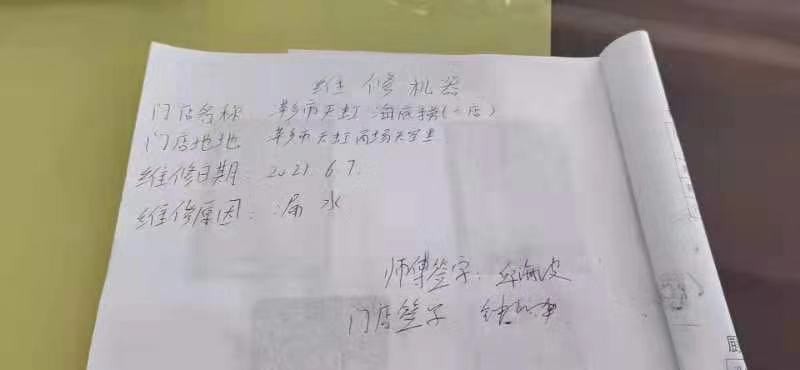 维修机器
门店名称 萍乡市天虹 海底捞(一店)
门店地地 萍乡市天虹商场天字
维修日期: 2021.6.7.
维修原因: 漏水
师傅签字: 邱海波
门店签字 钟